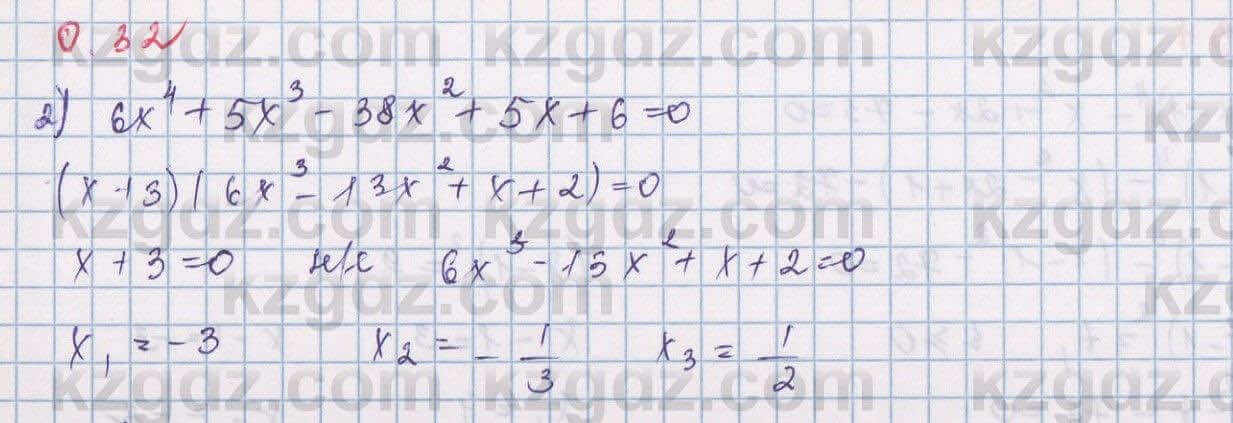 0.32
2) 6x⁴ + 5x³ - 38x² + 5x + 6 = 0
(x + 3)(6x³ - 13x² + x + 2) = 0
x + 3 = 0 н/е 6x³ - 13x² + x + 2 = 0
x₁ = -3 x₂ = -1/3 x₃ = 1/2
kzgdz.com kzgdz.com kzgdz.com
kzgdz.com kzgdz.com kzgdz.com
kzgdz.com kzgdz.com
kzgdz.com kzgdz.com kzgdz.com